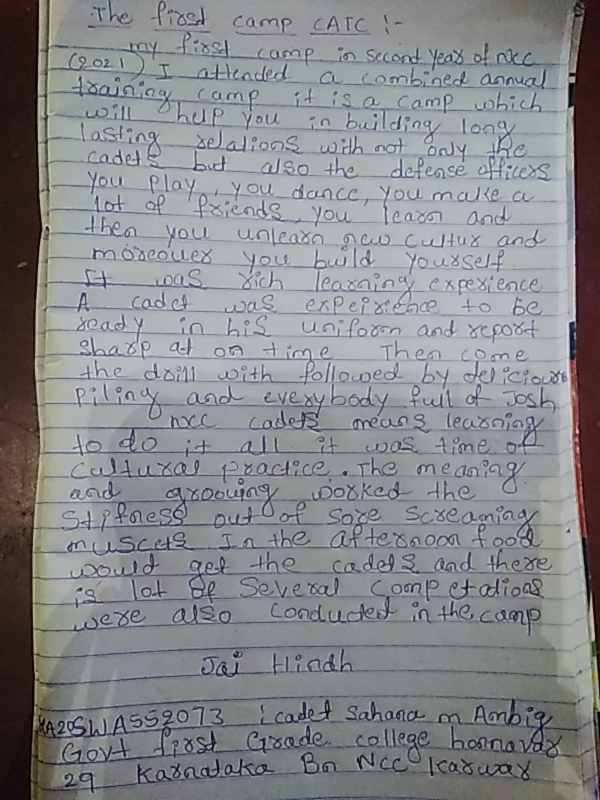 The first camp CATC :-
my first camp in second year of ncc
(2021) I attended a combined annual
training camp it is a camp which
will help you in building long
lasting relations with not only the
cadets but also the defense officers
you play, you dance, you make a
lot of friends, you learn and
then you unlearn new cultur and
moreover you build yourself
It was rich learning experience
A cadet was expeirience to be
ready in his uniform and report
sharp at on time Then come
the drill with followed by delicious
piling and everybody full of Josh
ncc cadets means learning
to do it all it was time of
cultural practice. The meaning
and grooving worked the
stifness out of sore screaming
muscels In the afternoon food
would get the cadets and there
is lot of several competations
were also conducted in the camp
Jai Hindh
KA20SWA552073 : cadet Sahana m Ambig
Govt first Grade college honnavar
29 Karnataka Bn NCC Karwar